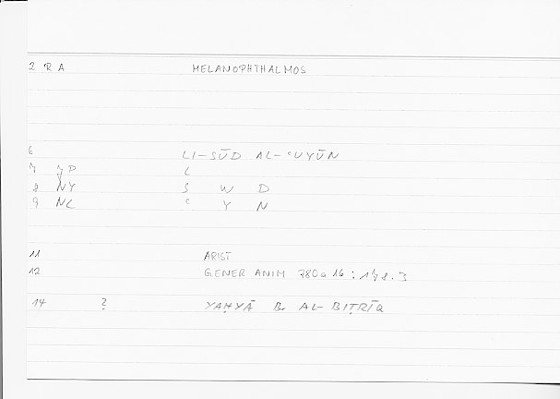 2 R A MELANOPHTHALMOS
6 LI-SŪD AL-ʿUYŪN
7 JP L
8 NY S W D
9 NL ʿ Y N
11 ARIST
12 GENER ANIM 780a16 : 178.3
14 ? YAḤYĀ B. AL-BIṬRĪQ